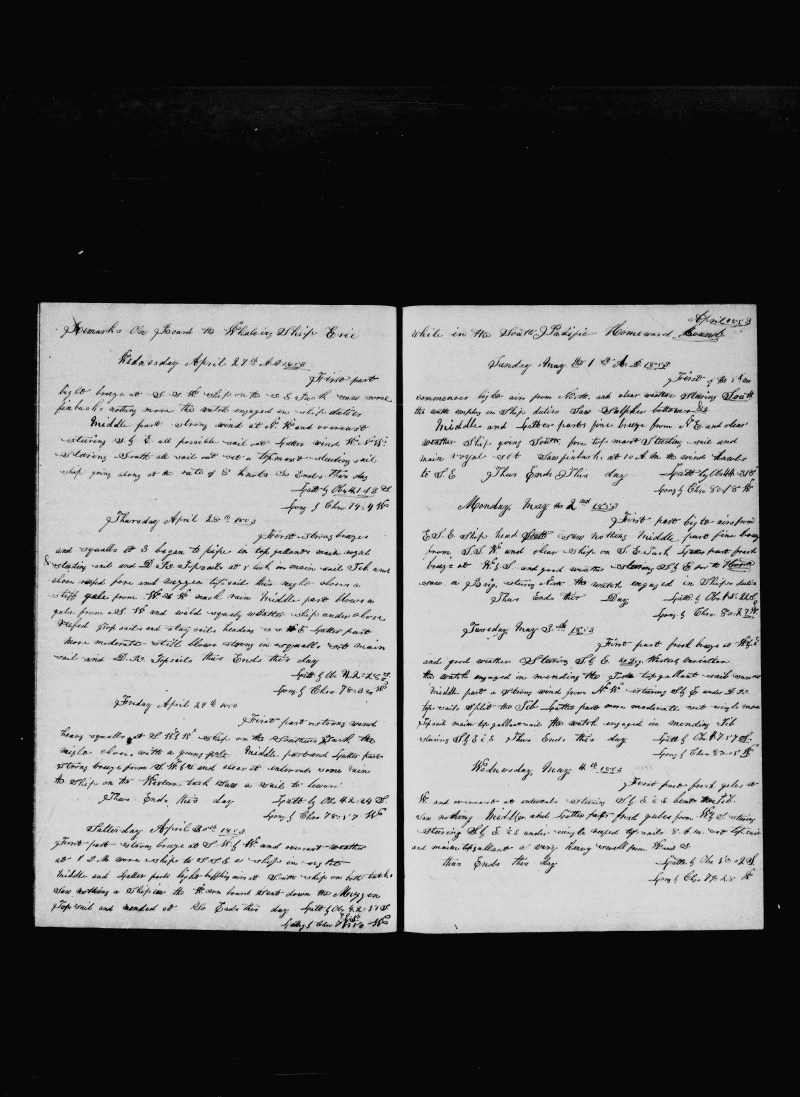 Remarks On Board the Whaleing Ship Eric
Wednesday April 27th A.D 1853
First part
light breeze at S. S. W. Ship on the S E Tack saw some
finbacks nothing more the watch engaged in ship duties
Middle part strong wind at N. W and overcast
steering S by E all possible sail set Latter wind W. N. W.
steering South all sail out set a topmast studding sail
ship going along at the rate of 8 knots So Ends this day
Latt by Obs 41-13 S.
Long by Chro 79.4 W
Thursday April 28th 1853
First strong breezes
and squalls at 3 began to pipe in top gallants main royal
studding sail and D. R. Topsails at 5 took in main sail Jib and
close reefd fore and mizzen topsail this night closes a
stiff gale from W. S W much rain Middle part blows a
gale from S W and wild squaly weather ship under close
reefed Topsails and stay sails heading Latter part
more moderate still blows strong in squalls set main
sail and D. R. Topsails this Ends this day
Latt by Obs 42-28 S
Long by Chro 78-34 W
Friday April 29th 1853
First part strong wind
heavy squalls at S. W by W ship on the Southern Tack the
night closes with a young gale Middle part and Latter part
strong breeze from S. W. and clear at intervals some rain
the ship on the Western tack Saw a sail to leward
Thus Ends this day Latt by Obs 42.24 S.
Long by Chro 78-57 W
Satterday April 30th 1853
First part strong breeze at S W by W and overcast weather
at 1 P.M wore ship to S S E a ship in sight
Middle and Latter parts light baffling airs at South ship on both tacks
Saw nothing a Ship in the Northern bound sent down the Mizzen
Topsail and mended it So Ends this day Latt by Obs 42-37 S
Long by Chro W
April 1853
while in the South Pacific Homeward Bound
Sunday May the 1st A. D 1853
First of the
commences light airs from North and clear weather Steering South
the watch employ in Ship duties Saw Sulpher bottoms
Middle and Latter parts fine breeze from N E and clear
weather Ship going South fore top mast Studding sail and
main royal set Saw finbacks at 10 A.M the wind hauls
to S. E Thus Ends This day Latt by Obs
Long by Chro 80-18 W
Monday May the 2nd 1853
First part light airs from
E S. E ship head South saw nothing Middle part fine breeze
from S. S. W and clear ship on S. E Tack Latter part fresh
breeze at W by S and good weather steering S by E to the
saw a Brig steering North the watch engaged in Ships duties
Thus Ends this Day Latt by Obs
Long by Chro 80-27 W.
Tuesday May 3th 1853
First part fresh breeze at W by S
and good weather Steering S by E. Westerly variation
the watch engaged in mending the Fore topgallant sail
Middle part a strong wind from N. W. steering S by E under D. R.
top sails split the Jib Latter part more moderate set single reefed
Topsail main topgallant sail the watch engaged in mending Jib
steering S by E ½ S Thus Ends this day Latt by Obs 47-57 S.
Long by Chro 80-08 W
Wednesday May 4th 1853
First part fresh gales at
W. and overcast at intervals steering S by E ½ S bent the Jib
Saw nothing Middle and Latter parts fresh gales from W by S steering
steering S by E ½ S under single reefed top sails 8 A.m set top sail
and main topgallant a very heavy swell from W and S
this Ends this day Latt by Obs 50-02 S
Long by Chro 79-28 W